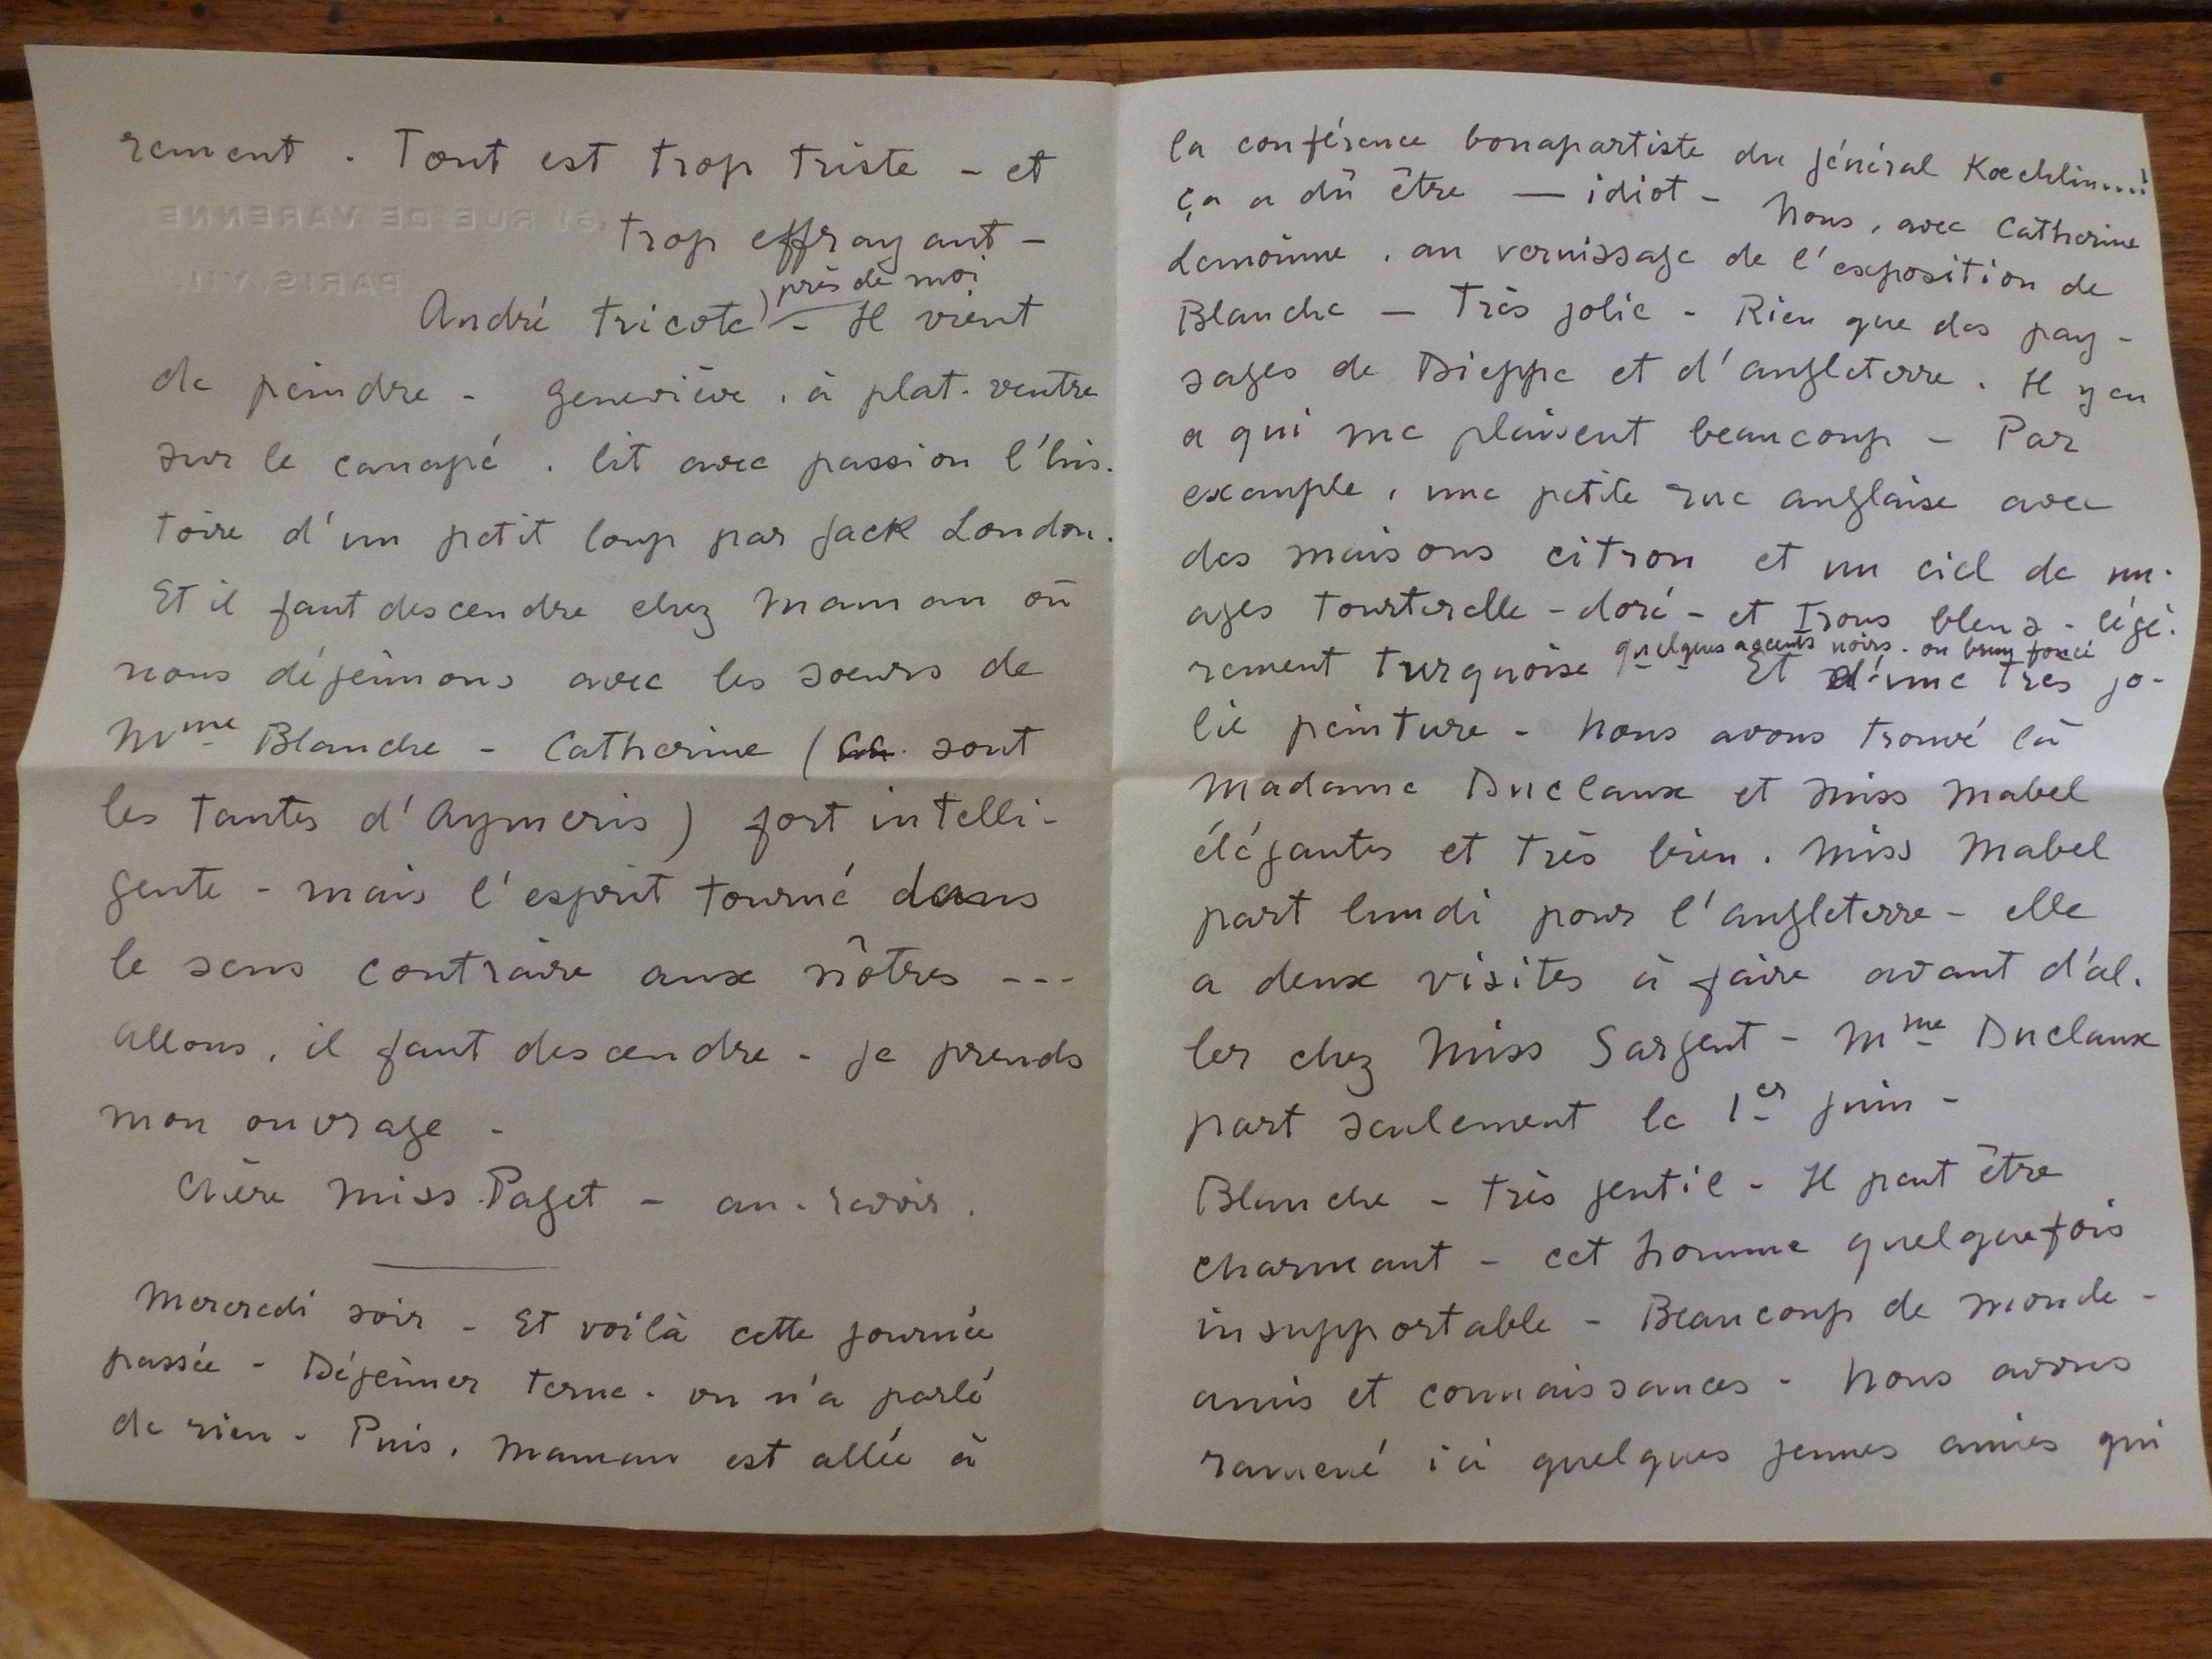 rement. Tout est trop triste - et
trop effrayant -
près de moi
André tricote - Il vient
de peindre - Geneviève, à plat-ventre
sur le canapé, lit avec passion l'his-
toire d'un petit loup par Jack London.
Et il faut descendre chez Maman où
nous déjeûnons avec les soeurs de
Mme Blanche - Catherine ( sont
les tantes d'Aymeris) fort intelli-
gente - mais l'esprit tourné dans
le sens contraire aux nôtres ---
Allons, il faut descendre - je prends
mon ouvrage -
Chère Miss Paget - au-revoir.
Mercredi soir - Et voilà cette journée
passée - Déjeûner terne. on n'a parlé
de rien - Puis, Maman est allée à
61 RUE DE VARENNE
PARIS VII
la conférence bonapartiste du général Koechlin....!
ça a dû être — idiot - Nous, avec Catherine
Lemoinne, au vernissage de l'exposition de
Blanche — Très jolie - Rien que des pay-
sages de Dieppe et d'Angleterre. Il y en
a qui me plaisent beaucoup - Par
exemple, une petite rue anglaise avec
des maisons citron et un ciel de nu-
ages tourterelle-doré - et trous bleus - légè-
quelques accents noirs - ou brun foncé
rement turquoise Et d'une très jo-
lie peinture - Nous avons trouvé là
Madame Duclaux et Miss Mabel
élégantes et très bien. Miss Mabel
part lundi pour l'Angleterre - elle
a deux visites à faire avant d'al-
ler chez Miss Sargent - Mme Duclaux
part seulement le 1er juin -
Blanche - très gentil - Il peut être
charmant - cet homme quelquefois
insupportable - Beaucoup de monde -
amis et connaissances - Nous avons
ramené ici quelques jeunes amies qui